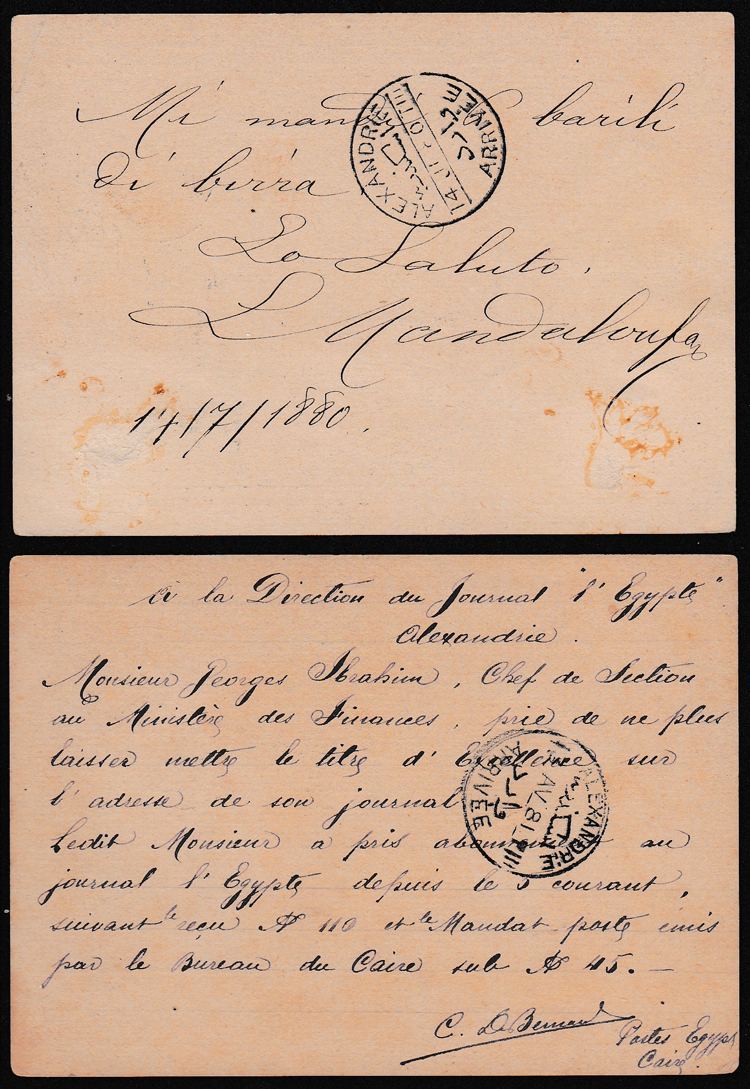 Mi mand barili
di birra
Lo Saluto,
L Mandaloufa
14/7/1880.
ALEXANDRIE
14 JUI 80 T III
ARRIVÉE
à la Direction du Journal "l'Egypte"
Alexandrie.
Monsieur Georges Ibrahim, Chef de Section
au Ministère des Finances, prie de ne plus
laisser mettre le titre d'Excellence sur
l'adresse de son journal
Ledit Monsieur a pris abonnement au
journal l'Egypte depuis le 5 courant,
suivant le reçu № 110 et le Mandat poste émis
par le Bureau du Caire sub № 45. —
C. De Bernard
Postes Egypt
Caire.
ALEXANDRIE
AV 81
ARRIVÉE